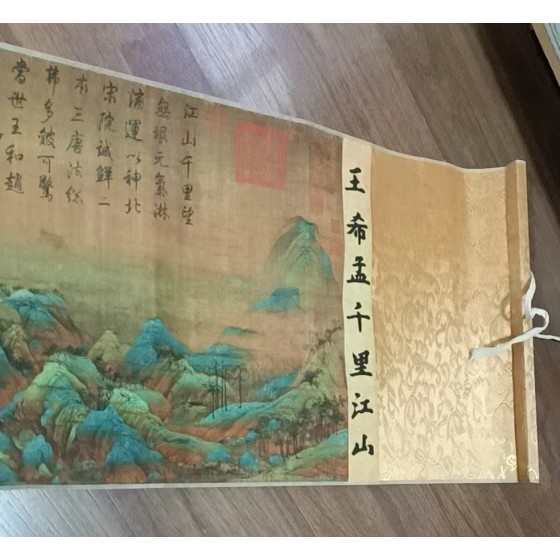 王希孟千里江山
江山千里望
無垠元氣淋
漓運以神北
宋院誠鮮二
本三唐法總
弗多皴可驚
當世王和趙